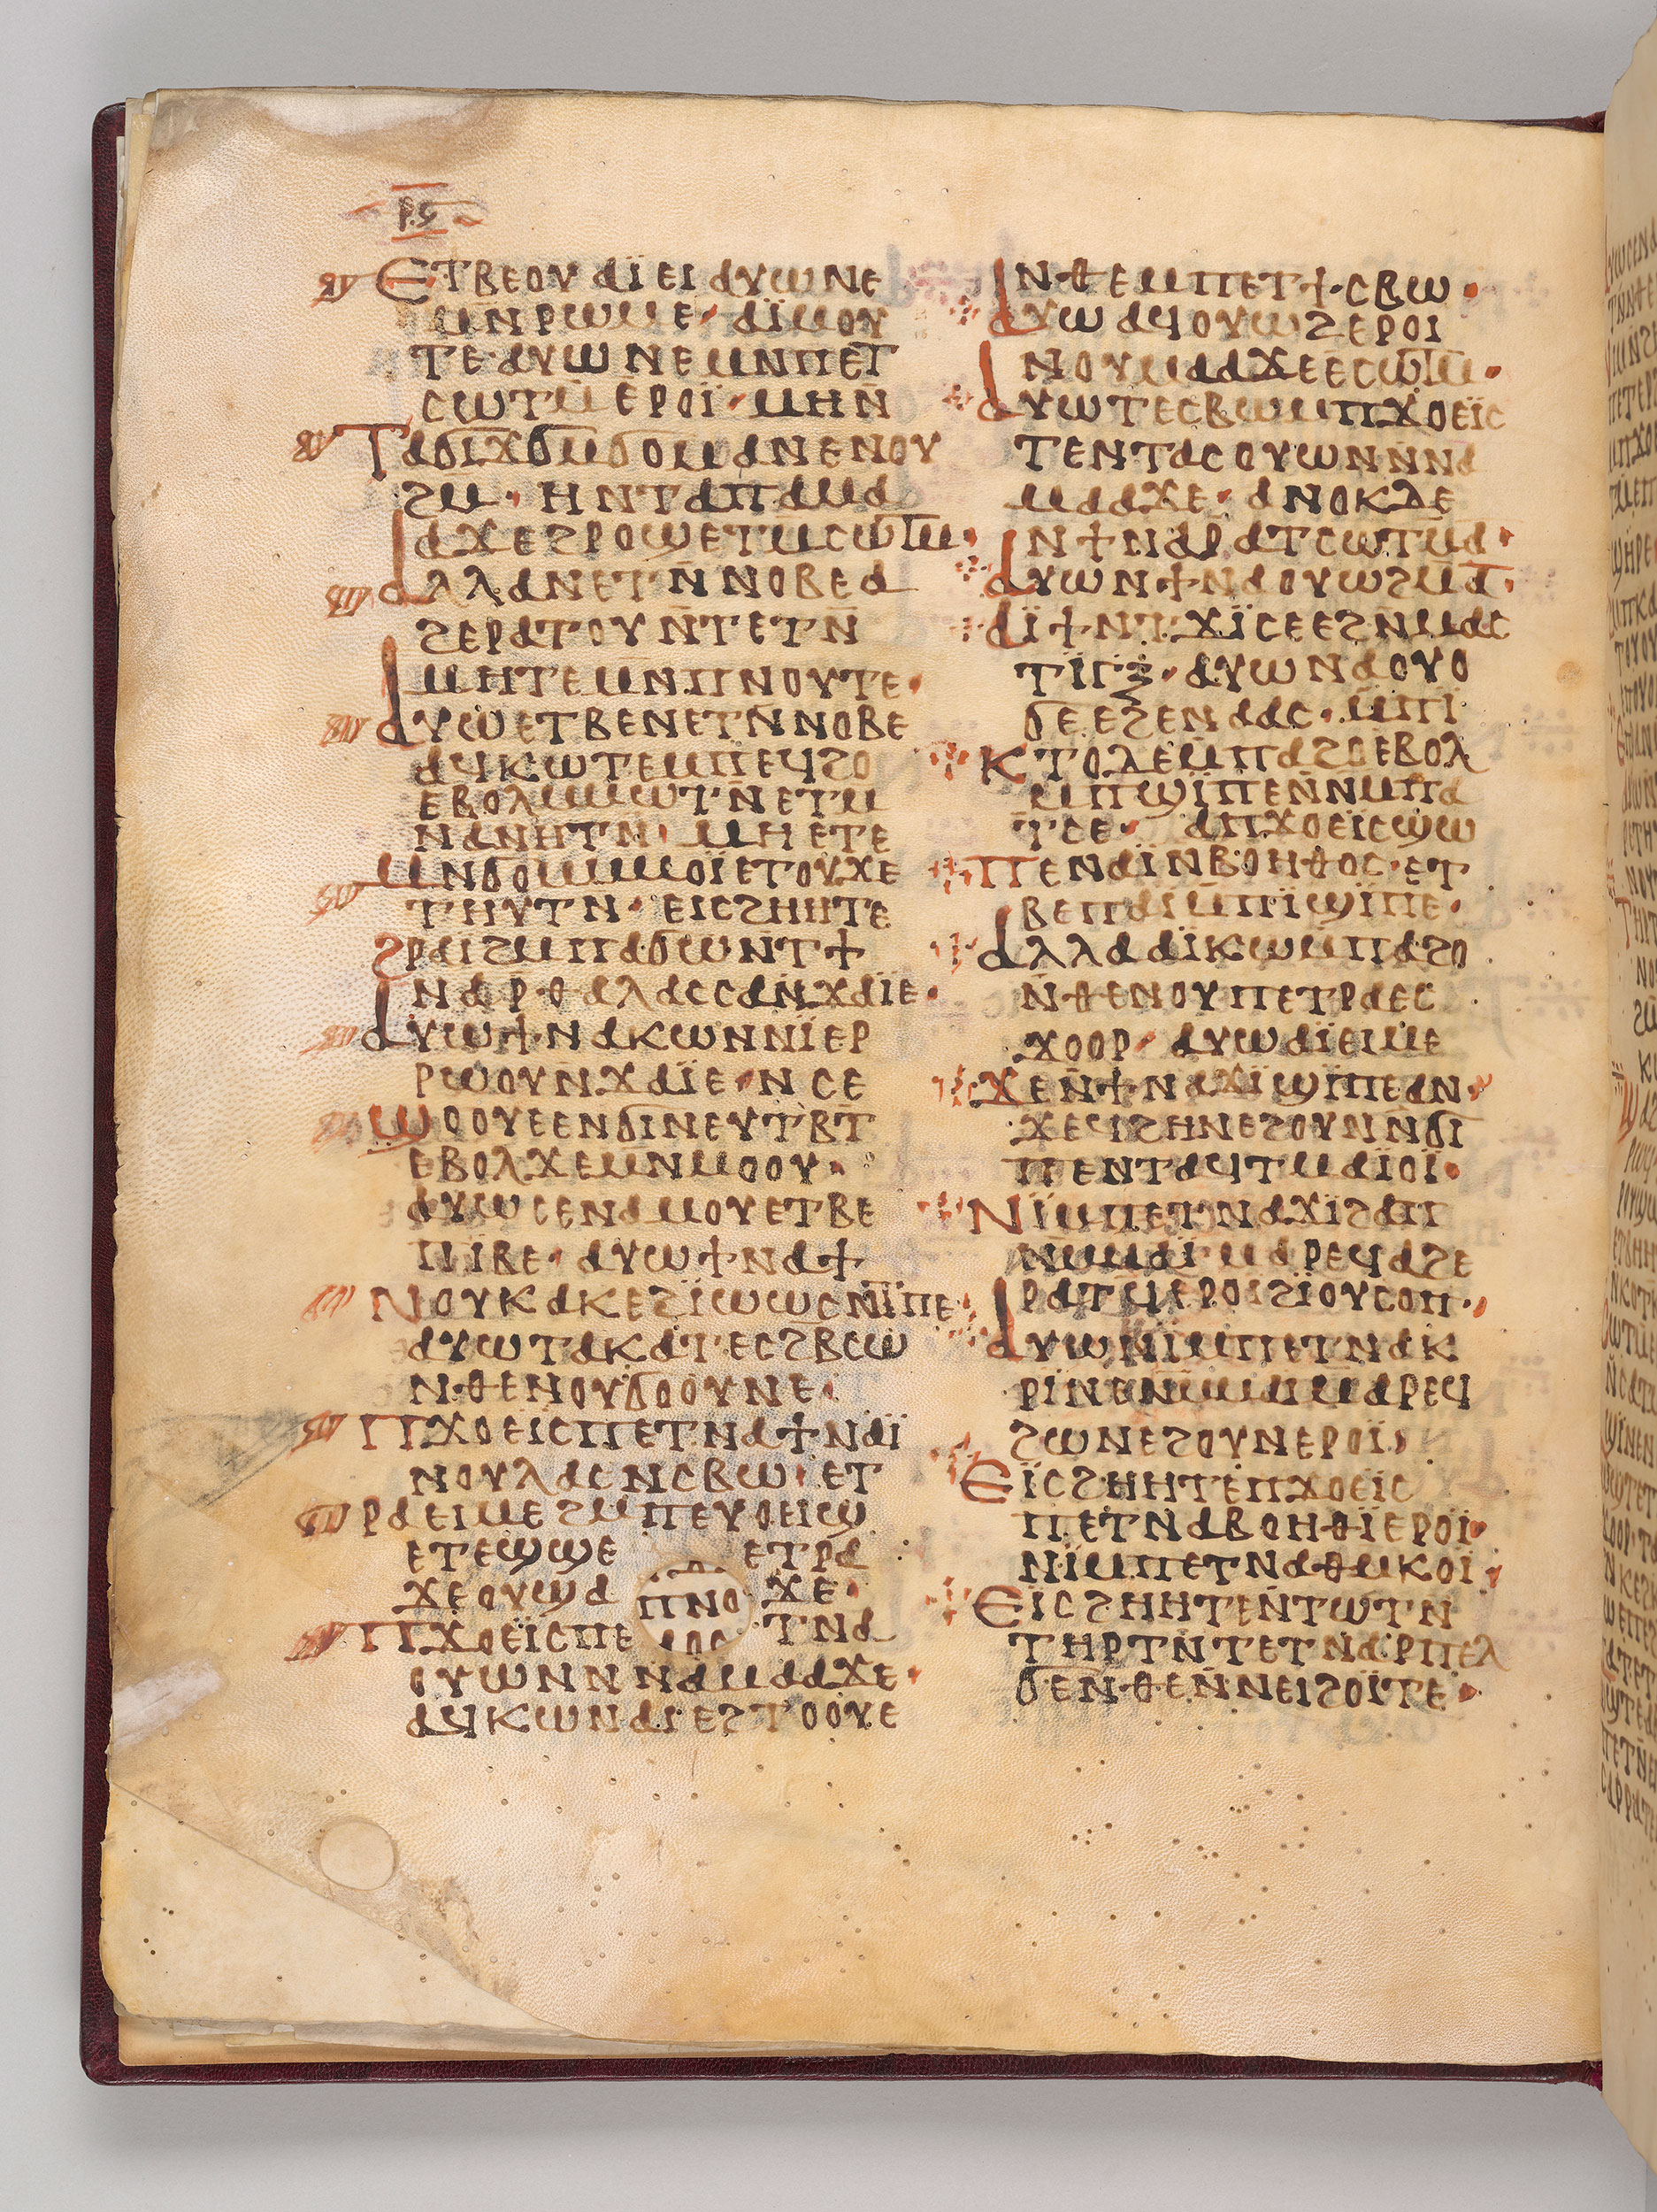 ⲣ︤ⲋ︥
ⲉⲧⲃⲉⲟⲩ ⲁⲓ̈ⲉⲓ ⲁⲩⲱⲛⲉ
ⲙⲛⲣⲱⲙⲉ· ⲁⲓ̈ⲙⲟⲩ
ⲧⲉ·ⲁⲩⲱⲛⲉⲙⲛⲡⲉⲧ
ⲥⲱⲧⲙ̄ⲉⲣⲟⲓ̈· ⲙⲏⲛ̄
ⲧⲁϭⲓϫϭⲙϭⲟⲙⲁⲛⲉⲛⲟⲩ
ϩⲙ· ⲏⲛⲧⲁⲡⲁⲙⲁ
ⲁϫⲉϩⲣⲟϣⲉⲧⲙⲥⲱⲧⲙ·
ⲁⲗⲗⲁⲛⲉⲧⲛ̄ⲛⲟⲃⲉⲁ
ϩⲉⲣⲁⲧⲟⲩⲛ̄ⲧⲉⲧⲛ̄
ⲙⲏⲧⲉⲙⲛ̄ⲡⲛⲟⲩⲧⲉ·
ⲁⲩⲱⲉⲧⲃⲉⲛⲉⲧⲛ̄ⲛⲟⲃⲉ
ⲁϥⲕⲱⲧⲉⲙⲡⲉϥϩⲟ
ⲉⲃⲟⲗⲙⲙⲱⲧⲛ̄ⲉⲧⲙ
ⲛⲁⲛⲏⲧⲛ· ⲙⲏⲉⲧⲉ
ⲙⲛϭⲟⲙⲙⲙⲟⲓ̈ⲉⲧⲟⲩϫⲉ
ⲧⲏⲩⲧⲛ· ⲉⲓⲥϩⲏⲏⲧⲉ
ϩⲣⲁⲓϩⲙⲡⲁϭⲱⲛⲧϯ
ⲛⲁⲣⲑⲁⲗⲁⲥⲥⲁⲛϫⲁⲓ̈ⲉ·
ⲁⲩⲱϯⲛⲁⲕⲱⲛⲛⲓ̈ⲉⲣ
ⲣⲱⲟⲩⲛϫⲁⲓ̈ⲉ·ⲛⲥⲉ
ϣⲟⲟⲩⲉⲉⲛϭⲓⲛⲉⲩⲧⲃⲧ
ⲉⲃⲟⲗϫⲉⲙⲛⲙⲟⲟⲩ·
ⲁⲩⲱⲥⲉⲛⲁⲙⲟⲩⲉⲧⲃⲉ
ⲡⲓⲃⲉ· ⲁⲩⲱϯⲛⲁϯ
ⲛⲟⲩⲕⲁⲕⲉϩⲓ̈ⲱⲱⲥⲛ̄ⲧⲡⲉ·
ⲁⲩⲱⲧⲁⲕⲁⲧⲉⲥϩⲃⲥⲱ
ⲛ·ⲑⲉⲛⲟⲩϭⲟⲟⲩⲛⲉ·
ⲡϫⲟⲉⲓⲥⲡⲉⲧⲛⲁϯⲛⲁⲓ̈
ⲛⲟⲩⲗⲁⲥⲛⲥⲃⲱ·ⲉⲧ
ⲣⲁⲉⲓⲙⲉϩⲙⲡⲉⲩⲟⲉⲓϣ
ⲉⲧⲉϣϣⲉ ⲉⲧⲣⲁ
ϫⲉⲟⲩϣⲁ ⲡⲛⲟ ϫⲉ·
ⲡϫⲟⲉⲓ̈ⲥⲡⲉ ⲧⲛⲁ
ⲟⲩⲱⲛⲛⲛⲁⲙⲁⲁϫⲉ·
ⲁϥⲕⲱⲛⲁⲓⲉϩⲧⲟⲟⲩⲉ
ⲛ·ⲑⲉⲙⲡⲉⲧϯ·ⲥⲃⲱ·
ⲁⲩⲱⲁϥⲟⲩⲱϩⲉⲣⲟⲓ
ⲛⲟⲩⲙⲁⲁϫⲉⲉⲥⲱⲧⲙ·
ⲁⲩⲱⲧⲉⲥⲃⲱⲙⲡϫⲟⲉⲓ̈ⲥ
ⲧⲉⲛⲧⲁⲥⲟⲩⲱⲛⲛⲛⲁ
ⲙⲁⲁϫⲉ· ⲁⲛⲟⲕⲇⲉ
ⲛϯⲛⲁⲣⲁⲧⲥⲱⲧⲙ̄ⲁ·
ⲁⲩⲱⲛϯⲛⲁⲟⲩⲱϩⲙ̄ⲁ·
ⲁⲓ̈ϯⲛⲧϫⲓ̈ⲥⲉⲉϩⲛ̄ⲙⲁⲥ
ⲧⲓ̈ⲅⲝ̄·ⲁⲩⲱⲛⲁⲟⲩⲟ
ϭⲉⲉϩⲉⲛⲁⲁⲥ·ⲙ̄ⲡⲓ
ⲕⲧⲟⲗⲉⲙ̄ⲡⲁϩⲟⲉⲃⲟⲗ
ⲙⲡϣⲓ̈ⲡⲉⲛ̄ⲛⲙⲡⲁ
ⲧⲥⲉ· ⲁⲡϫⲟⲉⲓⲥϣⲱ
ⲡⲉⲛⲁⲓ̈ⲛⲃⲟⲏⲑⲟⲥ·ⲉⲧ
ⲃⲉⲡⲁⲓⲙ̄ⲡⲓ̈ϣⲓ̈ⲡⲉ·
ⲁⲗⲗⲁⲁⲓ̈ⲕⲱⲙ̄ⲡⲁϩⲟ
ⲛ̄·ⲑⲉⲛⲟⲩⲡⲉⲧⲣⲁⲉⲥ
ϫⲟⲟⲣ· ⲁⲩⲱⲁⲓ̈ⲉⲓⲙⲉ
ϫⲉⲛ̄ϯⲛⲁϫⲓ̈ϣⲓ̈ⲡⲉⲁⲛ·
ϫⲉϥϩⲏⲛⲉϩⲟⲩⲛⲛ̄ϭⲓ
ⲡⲉⲛⲧⲁϥⲧⲙⲁⲓ̈ⲟⲓ̈·
ⲛⲓ̈ⲙⲡⲉⲧⲛⲁϫⲓϩⲁⲡ
ⲛⲙⲙⲁⲓ̈·ⲙⲁⲣⲉϥⲁϩⲉ
ⲣⲁⲧϥ̄ⲉⲣⲟⲓϩⲓ̈ⲟⲩⲥⲟⲡ·
ⲁⲩⲱⲛⲓ̈ⲙⲡⲉⲧⲛⲁⲕ
ⲣⲓ̈ⲛⲉⲛ̄ⲙⲙⲁⲓⲙⲁⲣⲉϥ
ϩⲱⲛⲉϩⲟⲩⲛⲉⲣⲟⲓ̈
ⲉⲓ̈ⲥϩⲏⲏⲧⲉⲡϫⲟⲉⲓ̈ⲥ
ⲡⲉⲧⲛⲁⲃⲟⲏⲑⲓ̈ⲉⲣⲟⲓ̈·
ⲛⲓ̈ⲙⲡⲉⲧⲛⲁⲑⲙⲕⲟⲓ̈·
ⲉⲓⲥϩⲏⲏⲧⲉⲛ̄ⲧⲱⲧⲛ
ⲧⲏⲣⲧⲛ̄ⲧⲉⲧⲛⲁⲣⲡⲉⲗ
ϭⲉⲛ·ⲑⲉⲛ̄ⲛⲉⲓϩⲟⲓ̈ⲧⲉ·